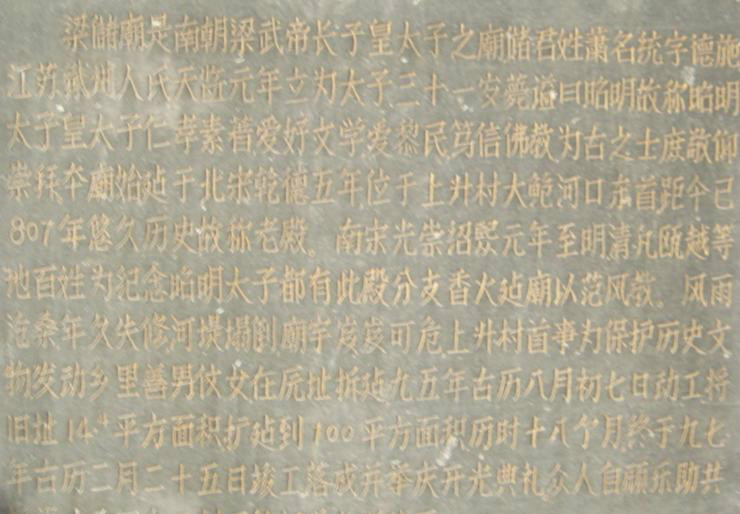 梁储廟是南朝梁武帝长子皇太子之廟储君姓萧名统字德施
江苏武州人氏天监元年立为太子三十一岁薨谥曰昭明故称昭明
太子皇太子仁孝素善爱好文学爱黎民笃信佛教为古之士庶敬仰
崇拜本廟始廴于北宋乾德五年位于上井村大鲍河口东首距今已
807年悠久历史故称老殿。南宋光崇绍熙元年至明清凡瓯越等
地百姓为纪念昭明太子都有此殿分支香火建廟以范风教。风雨
沧桑年久失修河堤塌倒廟宇岌岌可危上井村首事为保护历史文
物发动乡里善男女在原址拆建九五年古历八月初七日动工将
旧址14平方面积扩建到100平方面积历时十八个月终于九七
年古历二月二十五日竣工落成并举庆开光典礼众人自愿乐助共